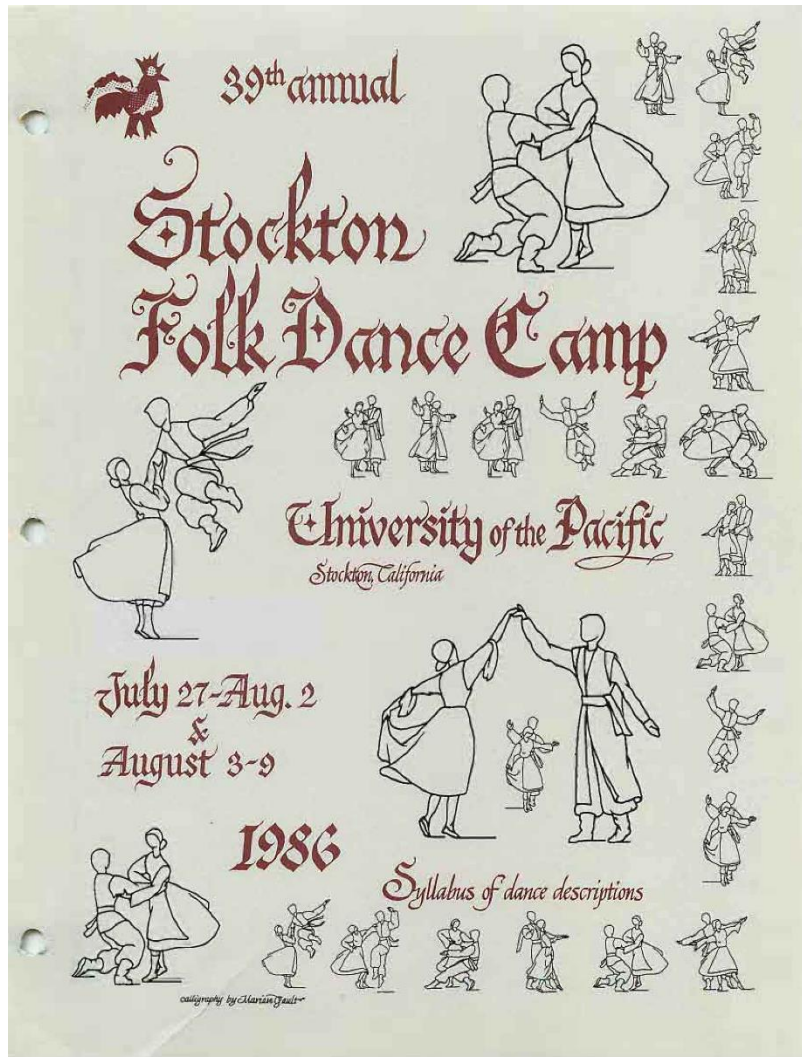 39th annual
Stockton
Folk Dance Camp
University of the Pacific
Stockton, California
July 27-Aug. 2
&
August 3-9
1986
Syllabus of dance descriptions
calligraphy by Marian Gault